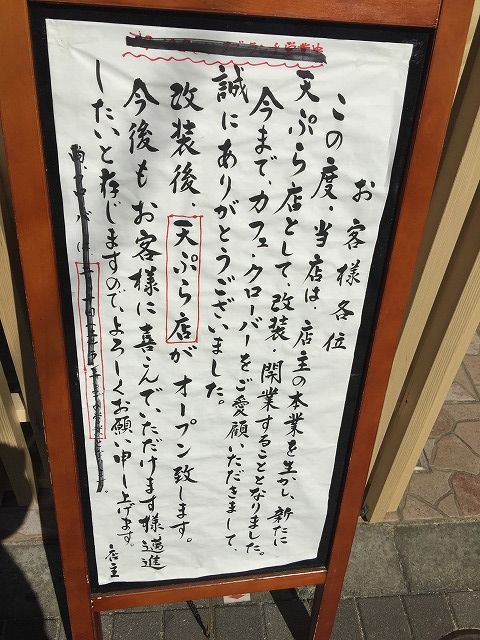 お客様各位
この度、当店は、店主の本業を生かし、新たに
天ぷら店として、改装・開業することとなりました。
今まで、カフェ・クローバーをご愛顧いただきまして、
誠にありがとうございました。
改装後、天ぷら店がオープン致します。
今後もお客様に喜こんでいただけます様邁進
したいと存じますので、よろしくお願い申し上げます。
店主